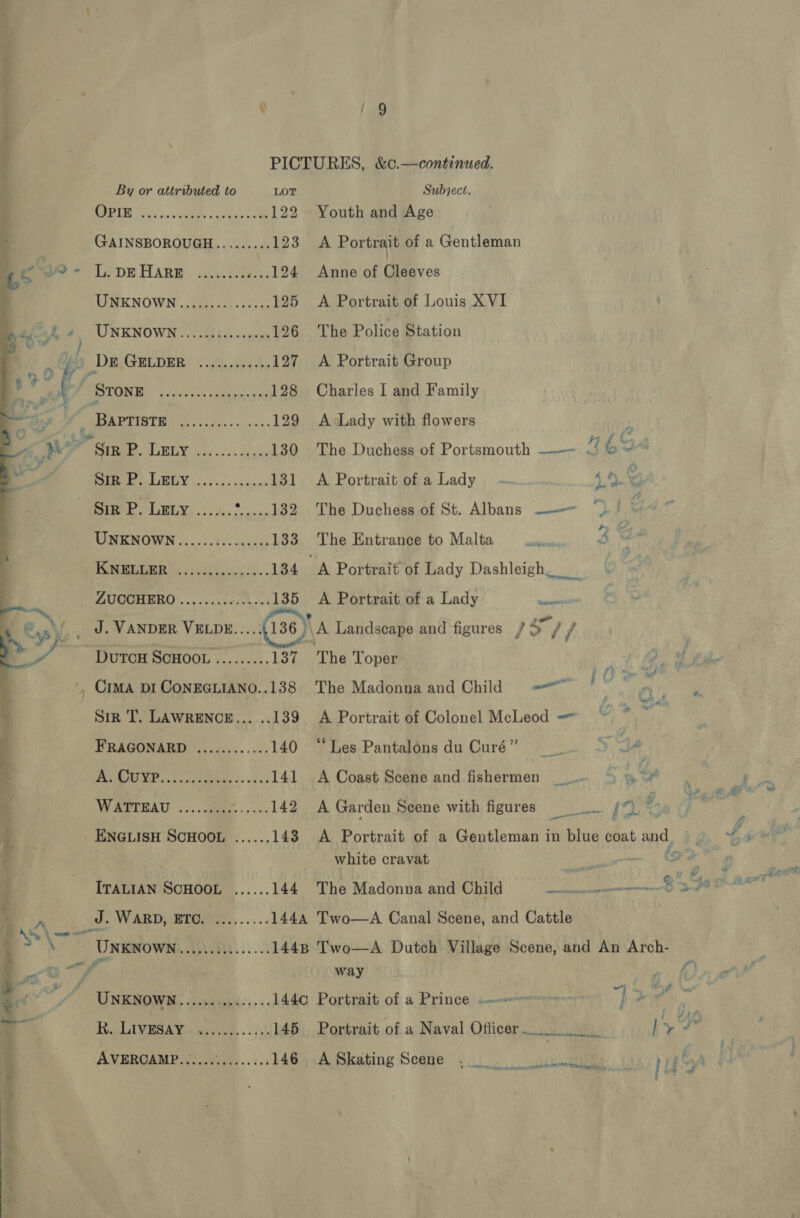 9
PICTURES, &c.—continued.
By or attributed to LOT Subject.
OPIE ........................122 Youth and Age
GAINSBOROUGH.........123 A Portrait of a Gentleman
L. DE HARE ............124 Anne of Cleeves
UNKNOWN...............125 A Portrait of Louis XVI
UNKNOWN...............126 The Police Station
DE GELDER ............127 A Portrait Group
STONE ..................128 Charles I and Family
BAPTISTE ...............129 A Lady with flowers
SIR P. LELY ............130 The Duchess of Portsmouth
SIR P. LELY ............131 A Portrait of a Lady
SIR P. LELY ............132 The Duchess of St. Albans
UNKNOWN...............133 The Entrance to Malta
KNELLER ...............134 A Portrait of Lady Dashleigh
ZUCCHERO ...............135 A Portrait of a Lady
J. VANDER VELDE.....136 A Landscape and figures
DUTCH SCHOOL .........137 The Toper
CIMA DI CONEGLIANO..138 The Madonna and Child
SIR T. LAWRENCE... ..139 A Portrait of Colonel McLeod
FRAGONARD ............140 “Les Pantalons du Curé”
A. CUYP..................141 A Coast Scene and fishermen
WATTEAU ...............142 A Garden Scene with figures
ENGLISH SCHOOL ......143 A Portrait of a Gentleman in blue coat and
white cravat
ITALIAN SCHOOL ......144 The Madonna and Child
J. WARD, ETC. .........144A Two—A Canal Scene, and Cattle
UNKNOWN...............144B Two—A Dutch Village Scene, and An Arch-
way
UNKNOWN...............144C Portrait of a Prince
R. LIVESAY ............145 Portrait of a Naval Officer
AVERCAMP...............146 A Skating Scene